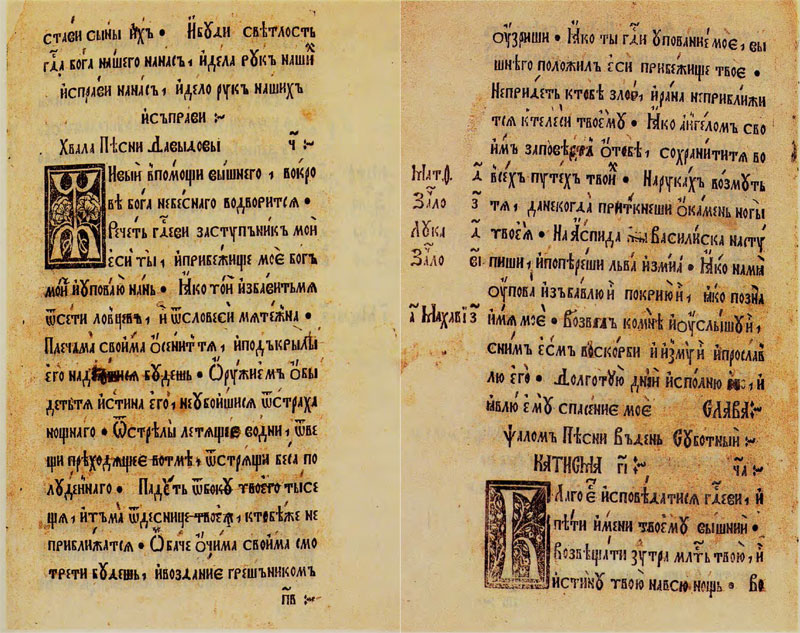 стави сыны и҆хъ • И҆буди свѣтлость
гд҃а бога нашего нанасъ, и҆дела рꙋк нашиⷯ
и҆справи нанасъ, и҆дело рꙋк нашихъ
и҆съправи :~
Хвала Пѣсни Давыдовы ч҃ :~
Живыи в̾помощи вышнего, вокро
вѣ бога небеснаго водворитсѧ •
Речеть гд҃еви застꙋпьник мои
еси ты, и҆прибежище мое богъ
мои и҆уповаю нань • Ꙗко тои избавитьмѧ
ѿсети ловцевъ, и ѿсловеси мѧтежна •
Плечама своима ѻ҆сенит тѧ, и҆подъкрылѣ
его надѣѧнисѧ бꙋдешь • Ѻ҆рꙋжиемъ ѻ҆бы
детьтѧ и҆стина его, неꙋбоишисѧ ѿстраха
нощнаго • Ѿстрѣлы летѧщие водни, ѿве
щи преходѧщее вотмѣ, ѿстрѧщи беса по
лꙋденнаго • Падеть ѿбокꙋ твоего тысе
ща, и҆тъма ѿдеснице твоеѧ, ктобѣже не
приближатсѧ • Ѻ҆баче ѻ҆чима своима смо
трети бꙋдешь, и҆воздание грешьником
пв҃ :~
ѹ҆зриши • Ꙗко ты гд҃и ꙋпование мое, вы
шнѣго положил еси прибежище твое •
Непридеть ктобѣ злое, и҆рана неприближи
тсѧ ктелеси твоемꙋ • Ꙗко аньгеломъ сво
им заповѣсть ѻ҆тобѣ, сохранититѧ во
Матⷴ. д҃ всѣхъ пꙋтехъ твоиⷯ • Нарꙋкахъ возмꙋть
Зало з҃ тѧ, данекогда приткнеши ѻ҆камень ногы
Лꙋка д҃ твоеѧ • На аспида и василиска настꙋ
Зало в҃і пиши, и҆попѣреши льва и҆змиѧ • Ꙗко намѧ
ѹ҆пова и҆збавлю и҆ покрию и҆, ꙗко позна
и҆мѧ мое • Возвалъ комнѣ и҆ѹ҆слышꙋ и҆,
сним есмъ воскорби и҆ измꙋ и҆ и҆прослав
лю его • Долготꙋю днии и҆сполню, и҆
ꙗвлю емꙋ спасение мое СЛАВА :~
Ѱаломъ Пѣсни въдень Сꙋботныи :~
КАТИСМА г҃і :~ ч҃а :~
Благо е҃ и҆споведатисѧ гд҃еви, и҆
пѣти имени твоемꙋ вышнии •
Возвѣщати зꙋтра млⷭ҇ть твою, и҆
и҆стинꙋ твою навсю нощь • Во